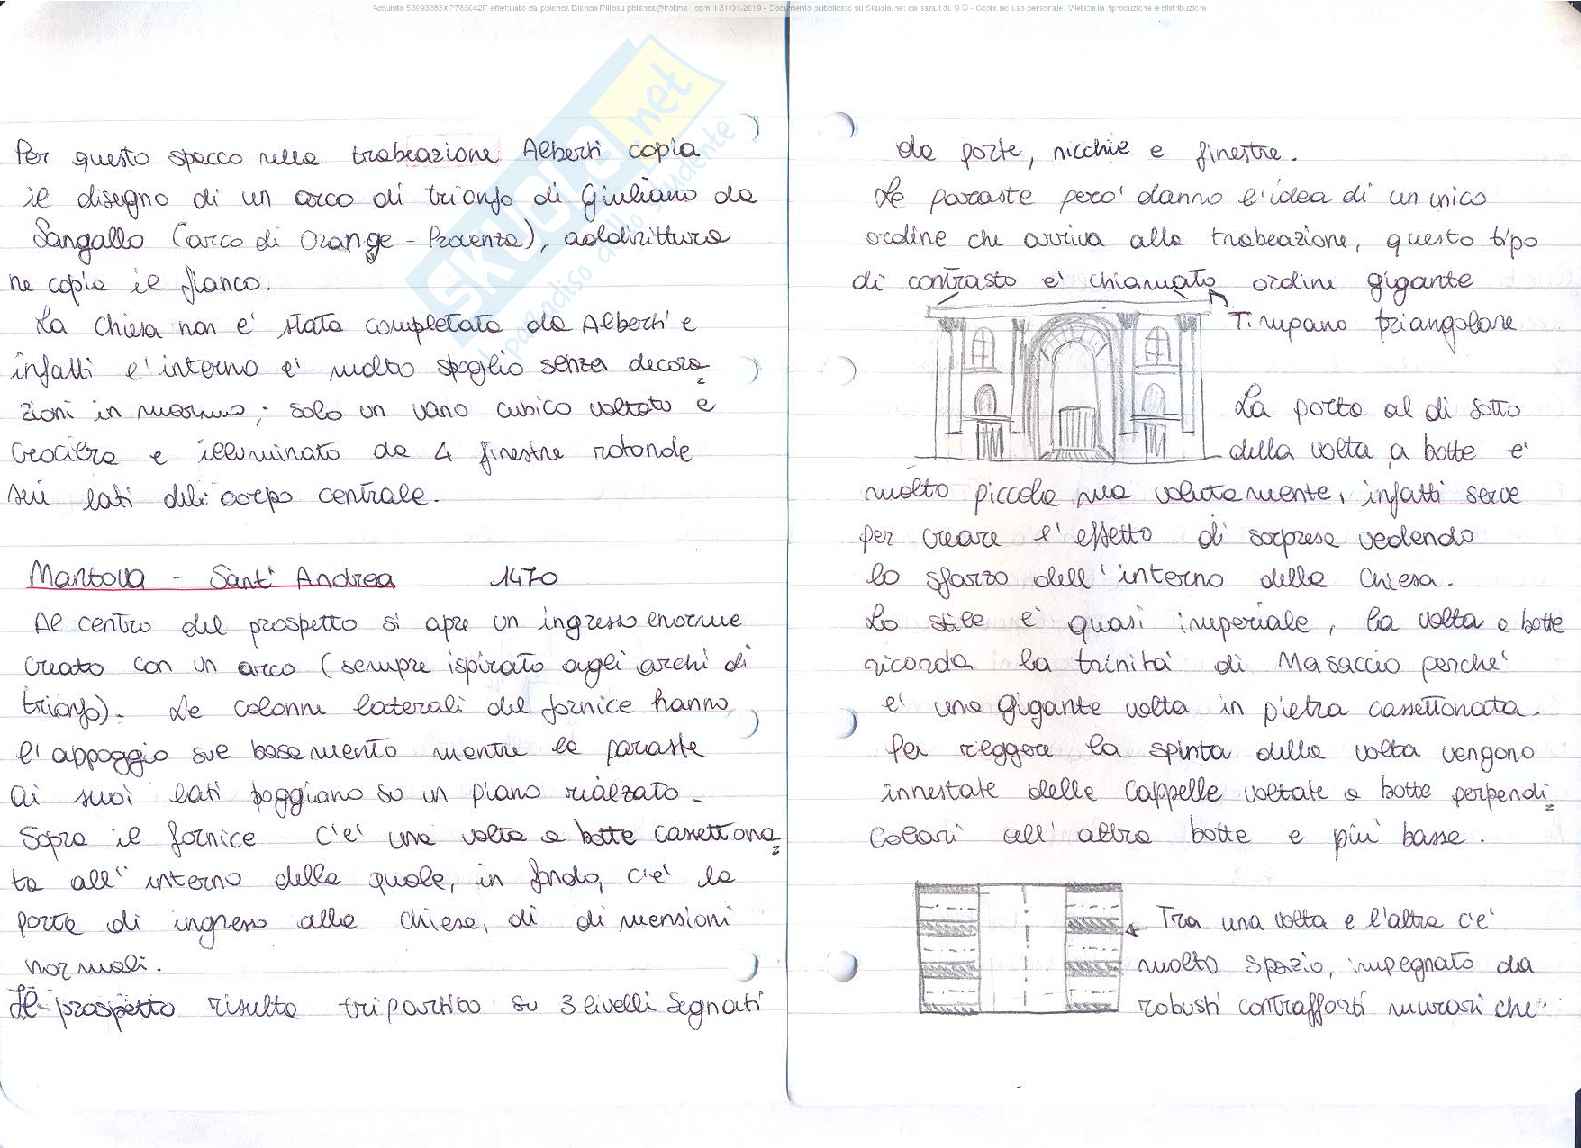 Per questo spacco nella trabeazione Alberti copia
il disegno di un arco di trionfo di Giuliano da
Sangallo (arco di Orange - Provenza), addirittura
ne copia il fianco.
La chiesa non e' stata completata da Alberti e
infatti l'interno e' molto spoglio senza decora
zioni in marmo; solo un vano cubico voltato a
crociera e illuminato da 4 finestre rotonde
sui lati del corpo centrale.
Mantova - Sant' Andrea 1470
Al centro del prospetto si apre un ingresso enorme
creato con un arco (sempre ispirato agli archi di
trionfo). Le colonne laterali del fornice hanno
l'appoggio sul basamento mentre le paraste
ai suoi lati poggiano su un piano rialzato.
Sopra il fornice c'e' una volta a botte cassettona
ta all' interno della quale, in fondo, c'e' la
porta di ingresso alla chiesa, di dimensioni
normali.
Il prospetto risulta tripartito su 3 livelli segnati
da porte, nicchie e finestre.
Le paraste pero' danno l'idea di un unico
ordine che arriva alla trabeazione, questo tipo
di contrasto e' chiamato ordine gigante
Timpano triangolare
La porta al di sotto
della volta a botte e'
molto piccola ma volutamente, infatti serve
per creare l'effetto di sorpresa vedendo
lo sfarzo dell'interno della chiesa.
Lo stile e' quasi imperiale, la volta a botte
ricorda la trinita' di Masaccio perche'
e' una gigante volta in pietra cassettonata.
Per reggere la spinta della volta vengono
innestate delle cappelle voltate a botte perpendi
colari all' altra botte e piu' basse.
Tra una volta e l'altra c'e'
molto spazio, impegnato da
robusti contrafforti murari che
skuola.net
il paradiso dello studente